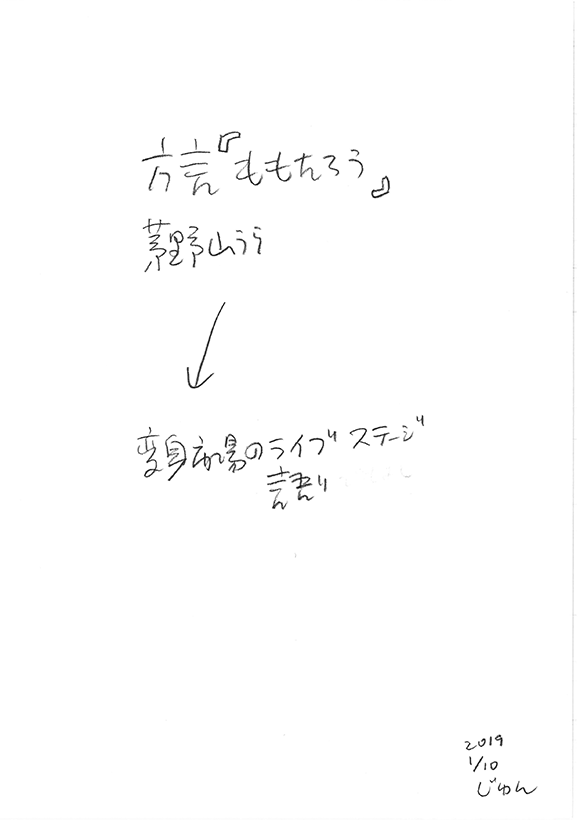 方言『ももたろう』
茅野山うら
↓
変身市場のライブステージ
語り
2019
1/10
じゅん